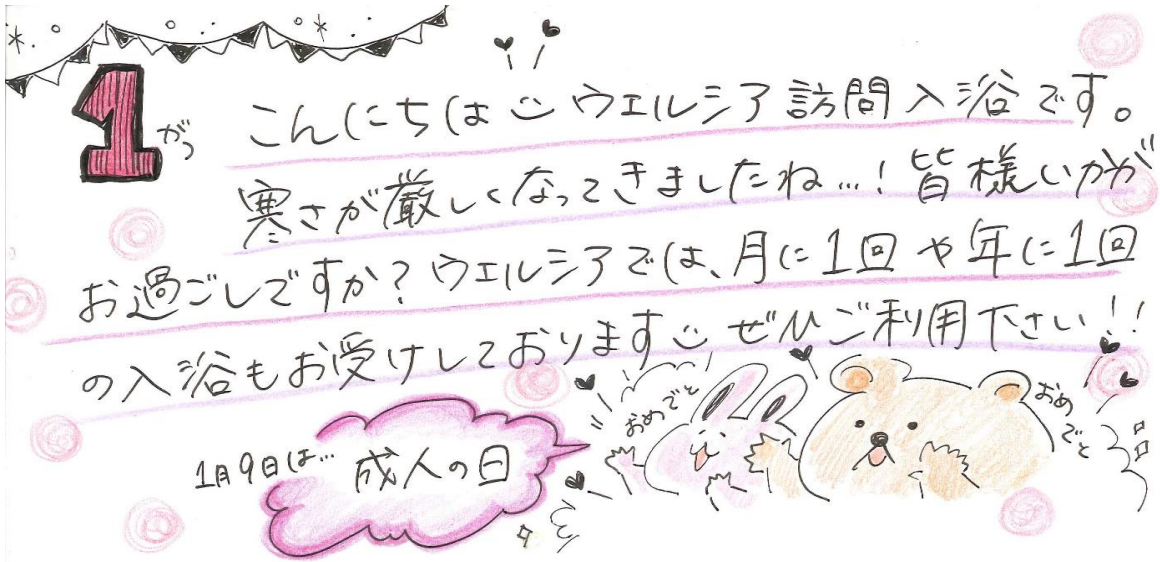 1がつ
こんにちは ウエルシア訪問入浴です。
寒さが厳しくなってきましたね…! 皆様いかが
お過ごしですか? ウエルシアでは、月に1回や年に1回
の入浴もお受けしております ぜひご利用下さい!!
おめでと
おめでと
1月9日は… 成人の日